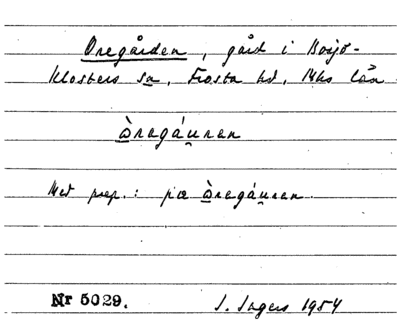 Oregården, gård i Bosjö-
klosters sn, Frosta hd, Mhs län
òregáu̯ren
Med prep.: pæ òregáu̯ren.
Nr 5029. J. Ingers 1954